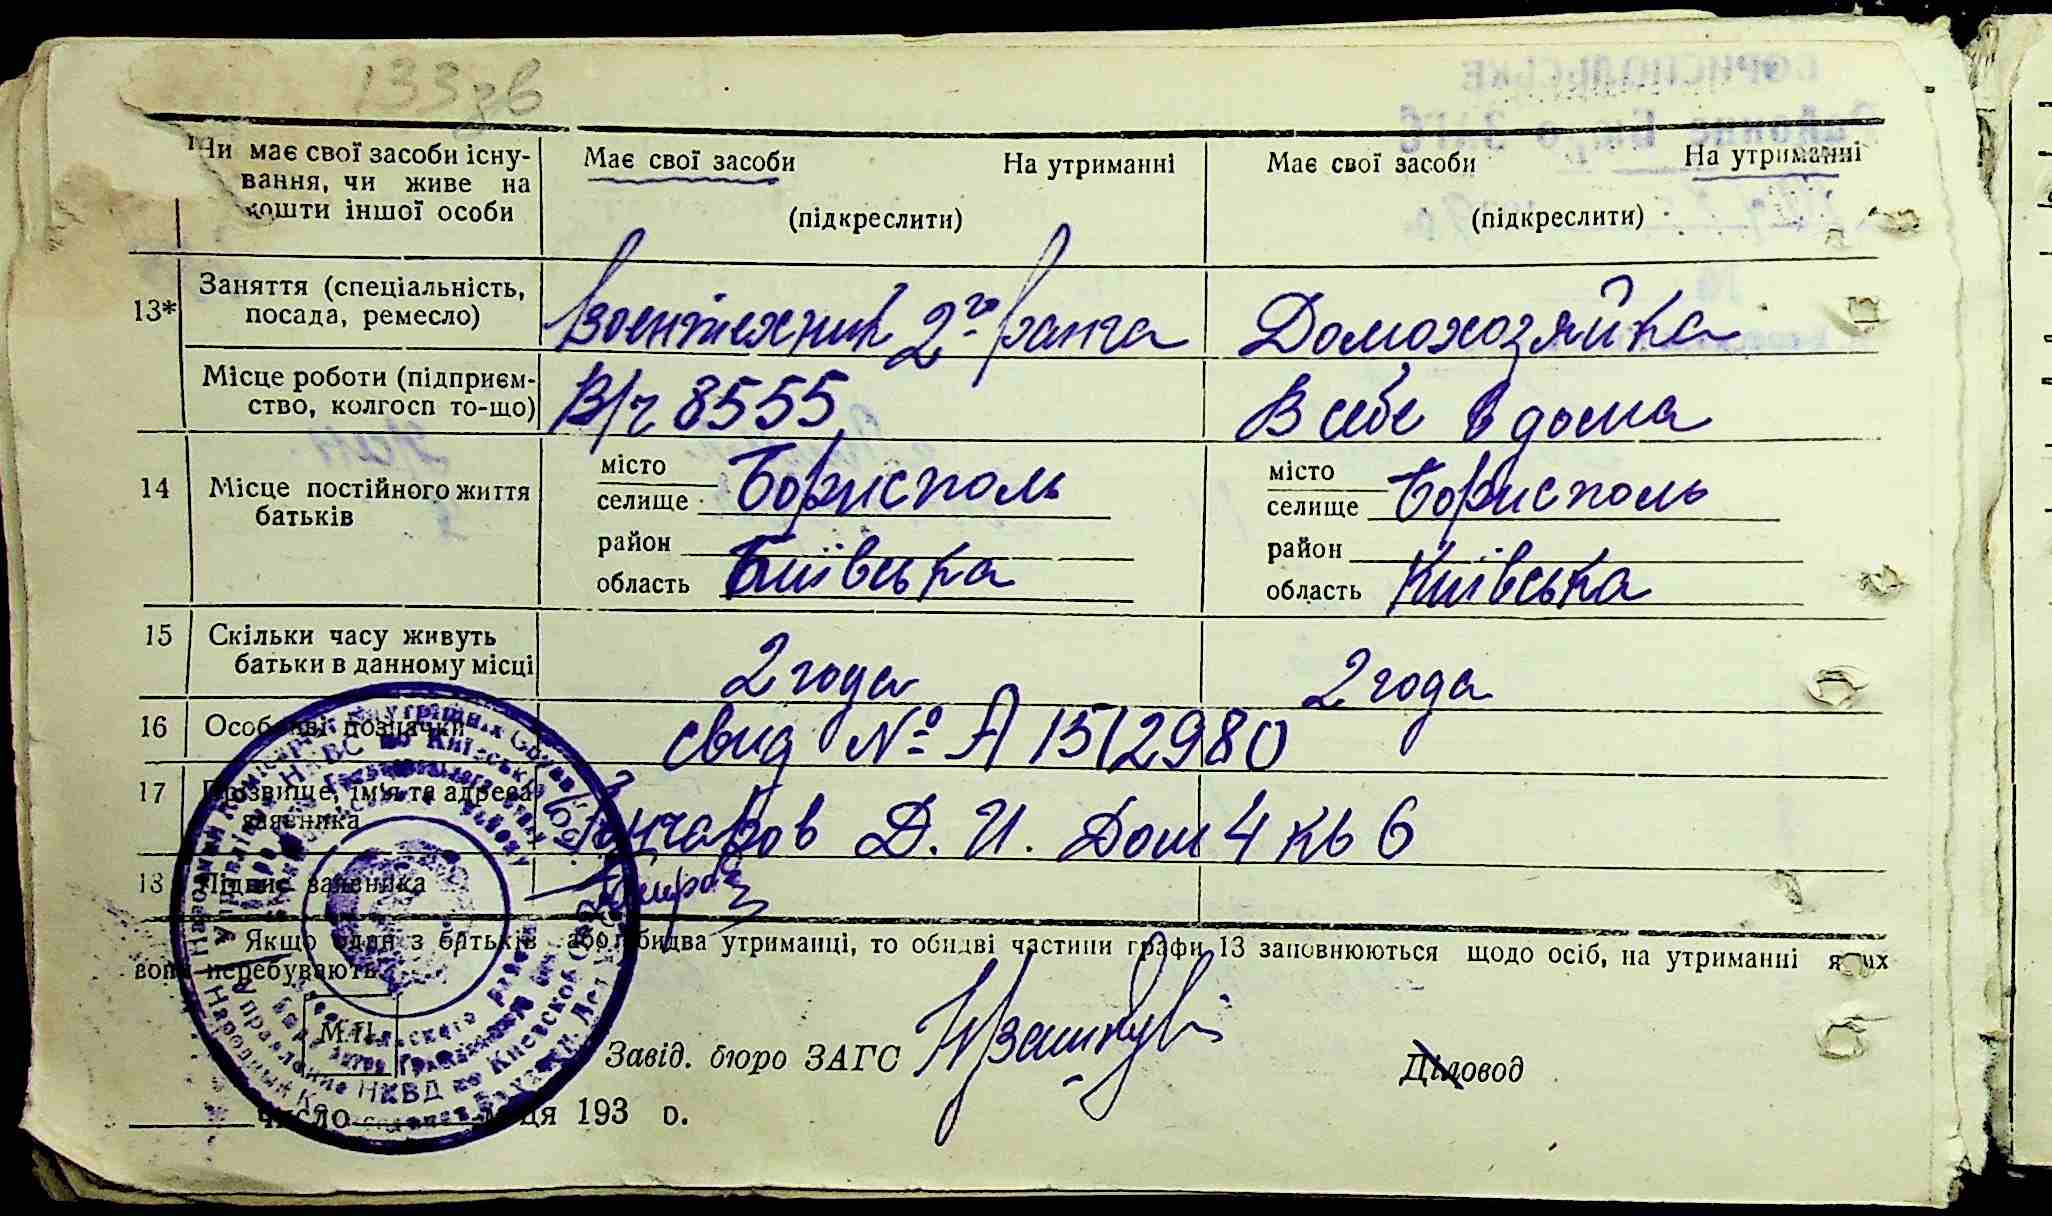 133 зв
Чи має свої засоби існу-
вання, чи живе на
кошти іншої особи
Має свої засоби На утриманні
(підкреслити)
Має свої засоби На утриманні
(підкреслити)
13* Заняття (спеціальність,
посада, ремесло)
Воентехник 2го ранга
Домохозяйка
Місце роботи (підприєм-
ство, колгосп то-що)
В/ч 8555
В себе в дома
14 Місце постійного життя
батьків
місто
селище Борисполь
район
область Київська
місто
селище Борисполь
район
область Київська
15 Скільки часу живуть
батьки в данному місці
2 года
2 года
16 Особливі позначки
свид № А 1512980
17 Прозвище, ім'я та адреса
заявника
Гончаров Д. И. Дом 4 кв 6
18 Підпис заявника
Якщо один з батьків або обидва утриманці, то обидві частини графи 13 заповнюються щодо осіб, на утриманні яких
вони перебувають.
М.П.
Завід. бюро ЗАГС
Діловод
число місяця 193 о.